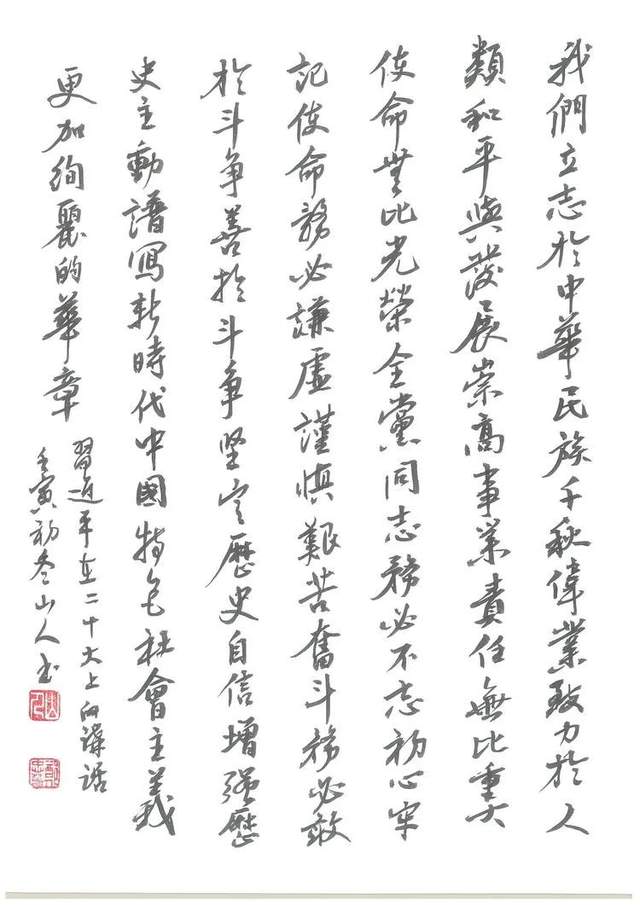 我們立志於中華民族千秋偉業致力於人
類和平與發展崇高事業責任無比重大
使命無比光榮全黨同志務必不忘初心牢
記使命務必謙虛謹慎艱苦奮斗務必敢
於斗争善於斗争坚定歷史自信增强歷
史主動譜寫新時代中國特色社會主義
更加絢麗的華章
習近平在二十大上的講話
壬寅初冬山人书